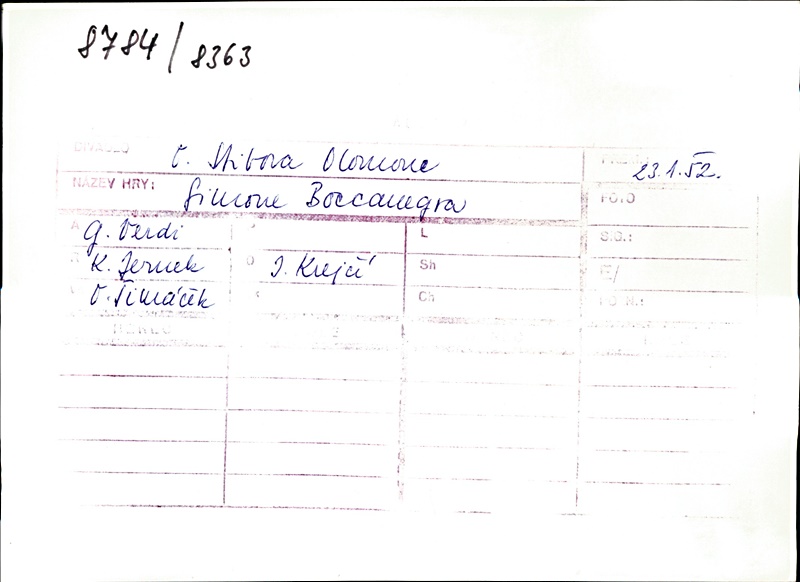 8784/8363
DIVADLO O. Stibora Olomouc 23.1.52.
NÁZEV HRY: Simone Boccanegra FOTO
A G. Verdi L S.G.:
R K. Jernek O I. Krejčí Sh
O. Šimáček Ch